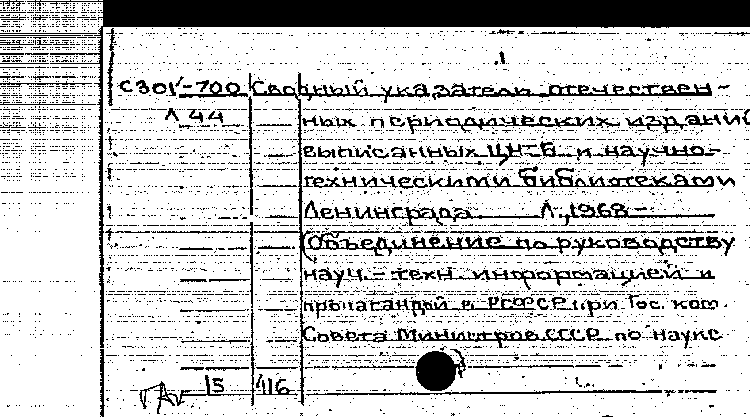 С301-700 Сводный указатели отечествен-
Л 44 ных периодических изданий
выписанных ЦНТБ и научно-
техническими библиотеками
Ленинграда. Л., 1968-
(Объединение по руководству
науч.-техн. информацией и
пропагандой в РСФСР при Гос. ком.
Совета Министров СССР по науке
15 416